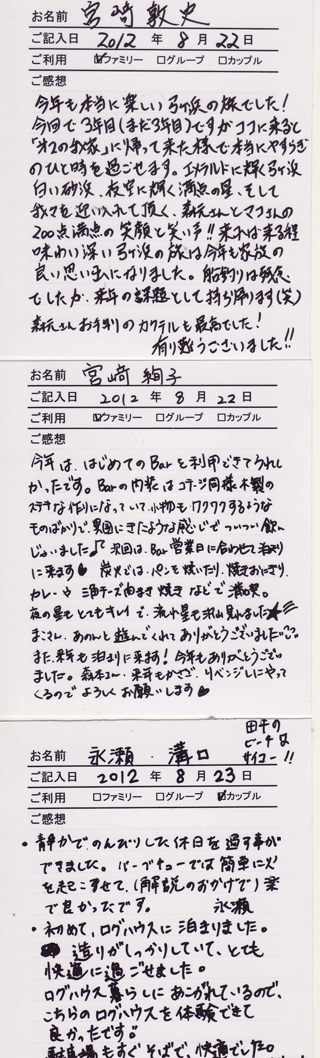 お名前 宮崎敦史
ご記入日 2012 年 8 月 22 日
ご利用 ☑ファミリー □グループ □カップル
ご感想
今年も本当に楽しい弓ヶ浜の旅でした!
今回で3年目(まだ3年目)ですがココに来ると
「オフの我家」に帰って来た様で本当にやすらぎ
のひと時を過ごせます。エメラルドに輝く弓ヶ浜
白い砂浜、夜空に輝く満点の星、そして
我々を迎い入れて頂く、森元さんとマコさんの
200点満点の笑顔と笑い声!!来れば来る程
味わい深い弓ヶ浜の旅は今年も家族の
良い思い出になりました。船釣りは残念
でしたが、来年の課題として持ち帰ります(笑)
森元さんお手創りのカクテルも最高でした!
有り難うございました!!
お名前 宮崎絢子
ご記入日 2012 年 8 月 22 日
ご利用 ☑ファミリー □グループ □カップル
ご感想
今年は、はじめてのBarを利用できてうれし
かったです。Barの内装はコテージ同様木製の
ステキな作りになっていて、小物もワクワクするような
ものばかりで、異国にきたような感じでついつい飲ん
じゃいました♪ 次回は、Bar営業日に合わせて泊まり
に来ます♥ 炭火では、パンを焼いたり、焼きおにぎり、
カレーや 三角チーズ油あき焼き などで満喫。
夜の星もとてもキレイで、流れ星も沢山見れました★
まこさん、あのんと遊んでくれてありがとうございました。
また、来年も泊まりに来ます!今年もありがとうござい
ました。森本さん、来年もかさご、リベンジしにやって
くるのでよろしくお願いします♥
田牛の
ビーチは
サイコー!!
お名前 永瀬・溝口
ご記入日 2012 年 8 月 23 日
ご利用 □ファミリー □グループ ☑カップル
ご感想
・静かでのんびりした休日を過す事が
できました。バーベキューでは簡単に火
を起こすせて、(解説のおかげで)楽
で良かったです。 永瀬
・初めて、ログハウスに泊まりました。
造りがしっかりしていて、とても
快適に過ごせました。
ログハウス暮らしにあこがれているので、
こちらのログハウスを体験できて
良かったです。
駐車場もすぐそばで、快適でした。